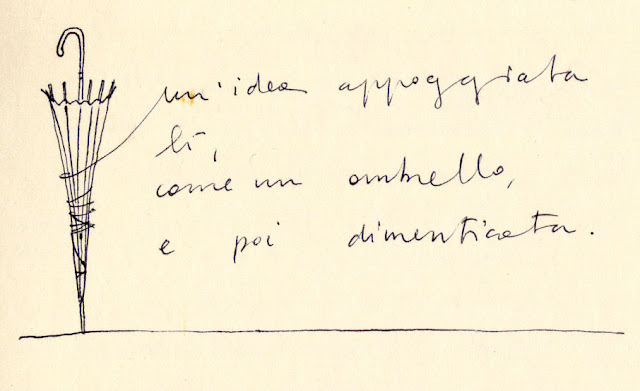 un'idea appoggiata
lì,
come un ombrello,
e poi dimenticata.